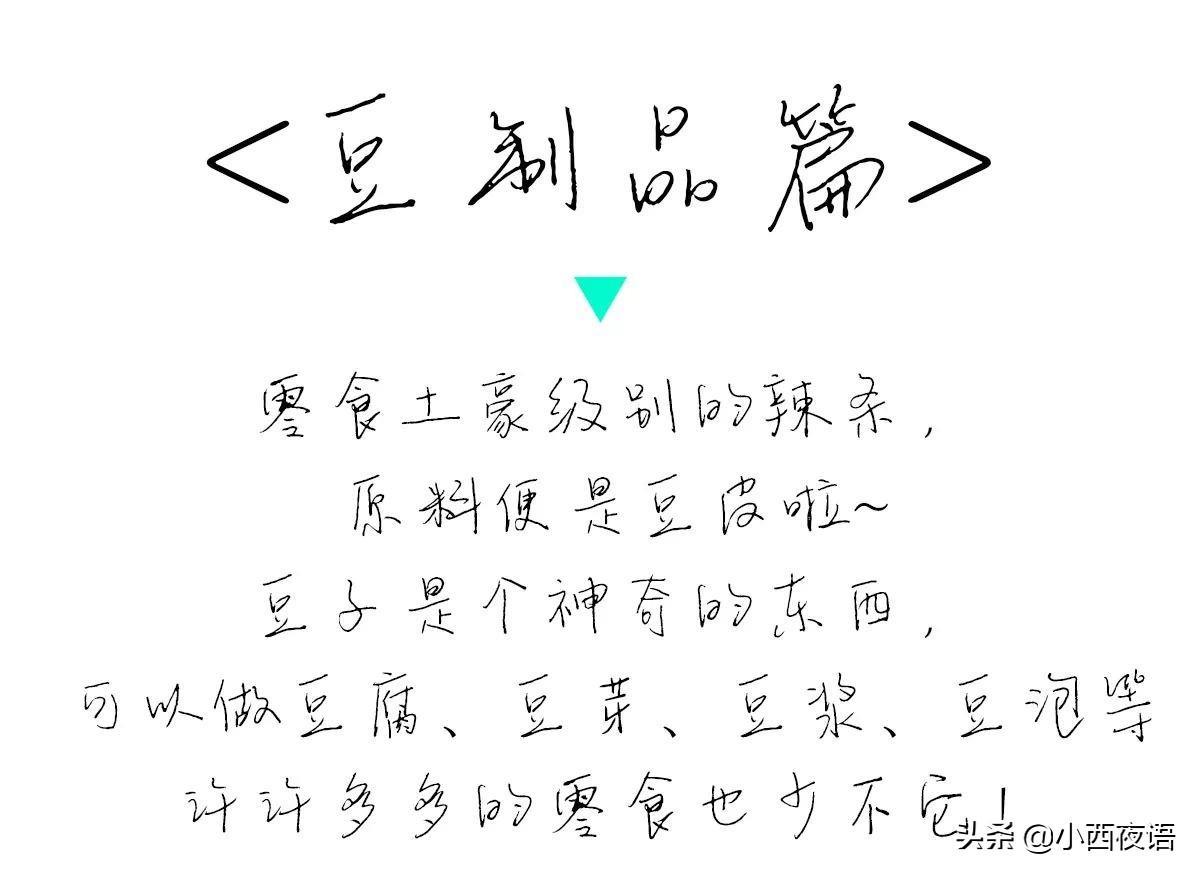 <豆制品篇>
零食土豪级别的辣条，
原料便是豆皮啦~
豆子是个神奇的东西，
可以做豆腐、豆芽、豆浆、豆泡等
许许多多的零食也少不它！
头条 @小西夜语